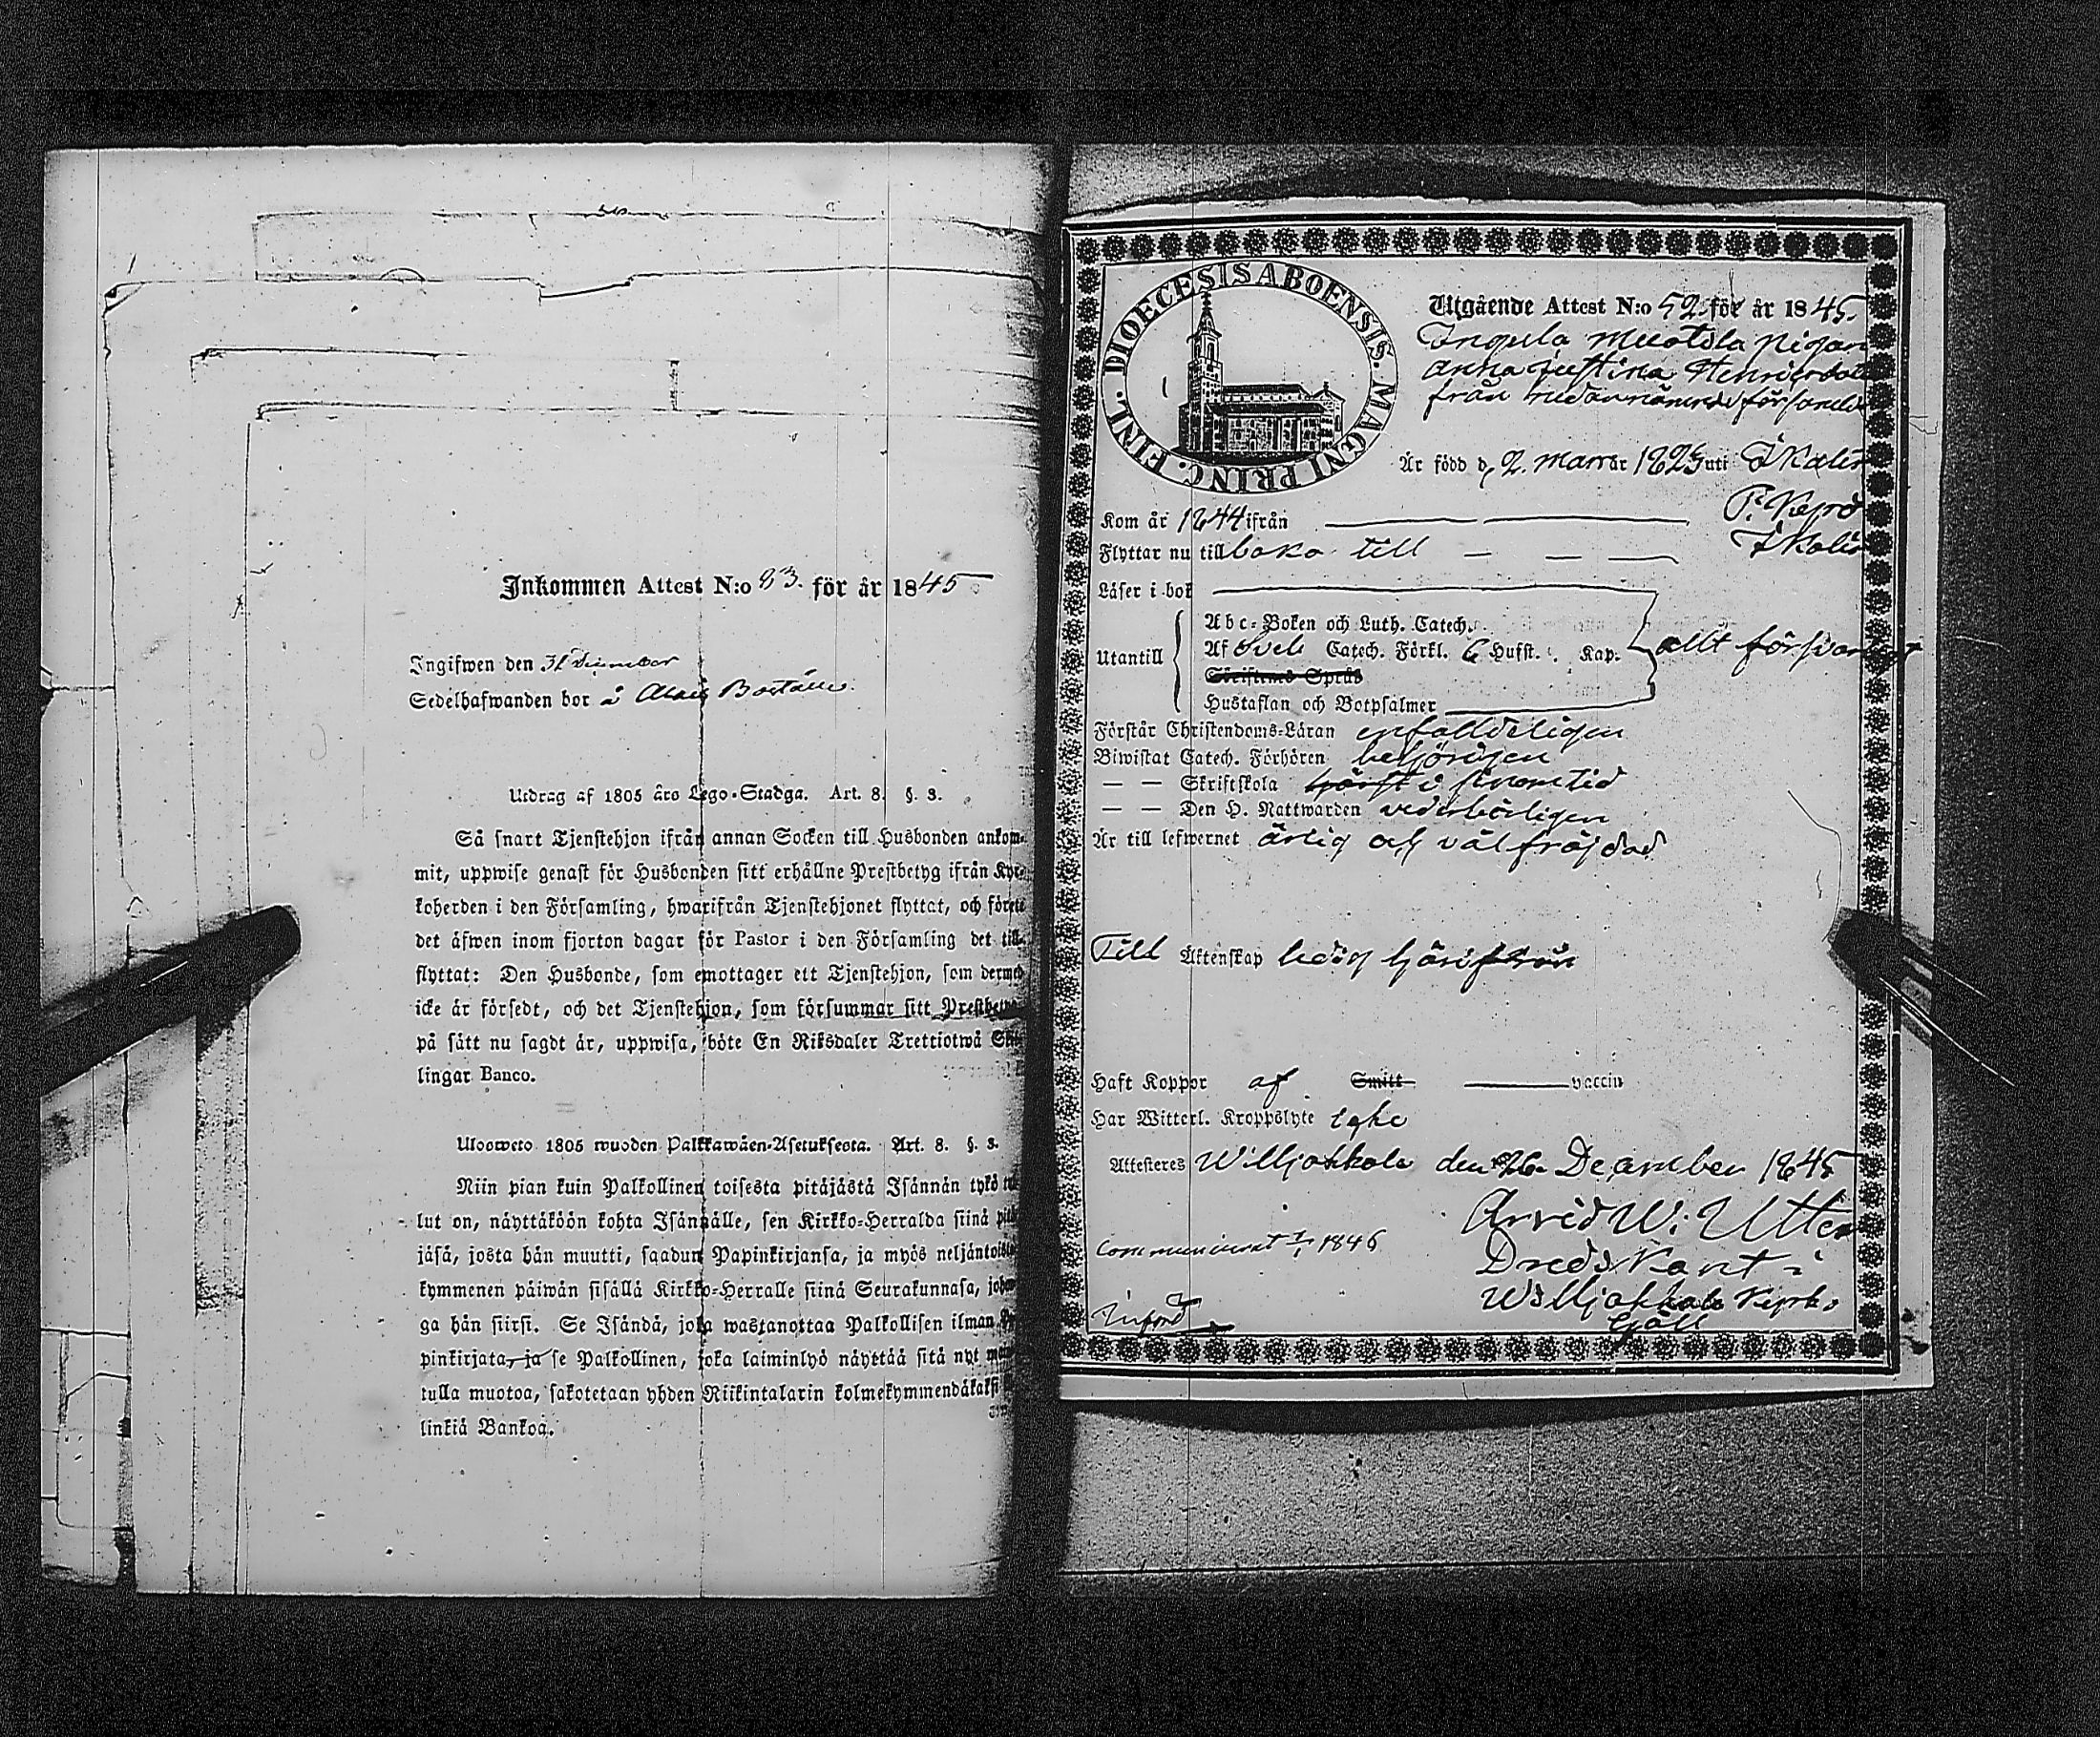 Inkommen Attest N:o 83. för år 1845
Ingifwen den 31 December
Sedelhafwanden bor å
Utdrag af 1805 års Lego-Stadga. Art. 8. §. 3.
Så snart Tjenstehjon ifrån annan Socken till Husbonden ankom-
mit, uppwise genast för Husbonden sitt erhållne Prestbetyg ifrån Kyr-
koherden i den Församling, hwarifrån Tjenstehjonet flyttat, och förete
det äfwen inom fjorton dagar för Pastor i den Församling det till-
flyttat: Den Husbonde, som emottager ett Tjenstehjon, som dermed
icke är försedt, och det Tjenstehjon, som försummar sitt Prestbetyg
på sätt nu sagdt är, uppwisa, böte En Riksdaler Trettiotwå Skil-
lingar Banco.
Ulosweto 1805 wuoden Palkkawäen-Asetuksesta. Art. 8. §. 3.
Niin pian kuin Palkollinen toisesta pitäjästä Isännän tykö tul-
lut on, näyttäköön kohta Isännälle, sen Kirkko-Herralda siinä pitä-
jäsä, josta hän muutti, saadun Papinkirjansa, ja myös neljäntoista
kymmenen päiwän sisällä Kirkko-Herralle siinä Seurakunnasa, johon-
ga hän siirsi. Se Isändä, joka wastanottaa Palkollisen ilman Pa-
pinkirjata, ja se Palkollinen, joka laiminlyö näyttää sitä nyt
tulla muotoa, sakotetaan yhden Riikintalarin kolmekymmendäkaksi
linkiä Bankoa.
DIOECESIS ABOENSIS. MAGNI PRINC. FINL.
Utgående Attest N:o 52 för år 1845.
pigan
Anna Justina
från nedannämnde församling
Är född d. 2. mars år 1825 uti Ikalis
Kom år 1844 ifrån
Ikalis
Flyttar nu tillbaka till
Läser i bok
Utantill
Abc-Boken och Luth. Catech.
Af Sveb Catech. Förkl. 6 Hufst. Kap. allt försvarligt
Skriftenes Språk
Hustaflan och Botpsalmer
Förstår Christendoms-Läran enfalldeligen
Biwistat Catech. Förhören behörigen
— — Skriftskola i sinom tid
— — Den H. Nattwarden vederbörligen
Är till lefwernet ärlig och väl fräjdad
Till Äktenskap ledig härifrån
Haft Koppor af Smitt vaccin
Har Witterl. Kroppslyte icke
Attesteres Williakkala den 26 December 1845
Arvid W: Utter
Williakkala
1846
Införd